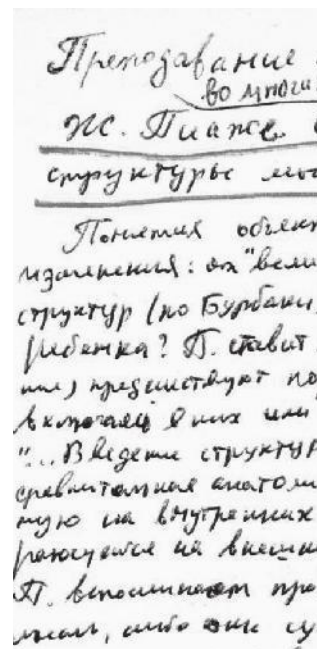 Преподавание
во многи
Ж. Пиаже
структуры мы
Понятия объект
изменения: от "вели
структур (по Бурбаки)
ребенка? П. ставит
предшествуют по
включаясь в них или
"... Введение структур
сравнительная анатоми
ную на внутренних
на внешни
П. вспоминает про
либо они су